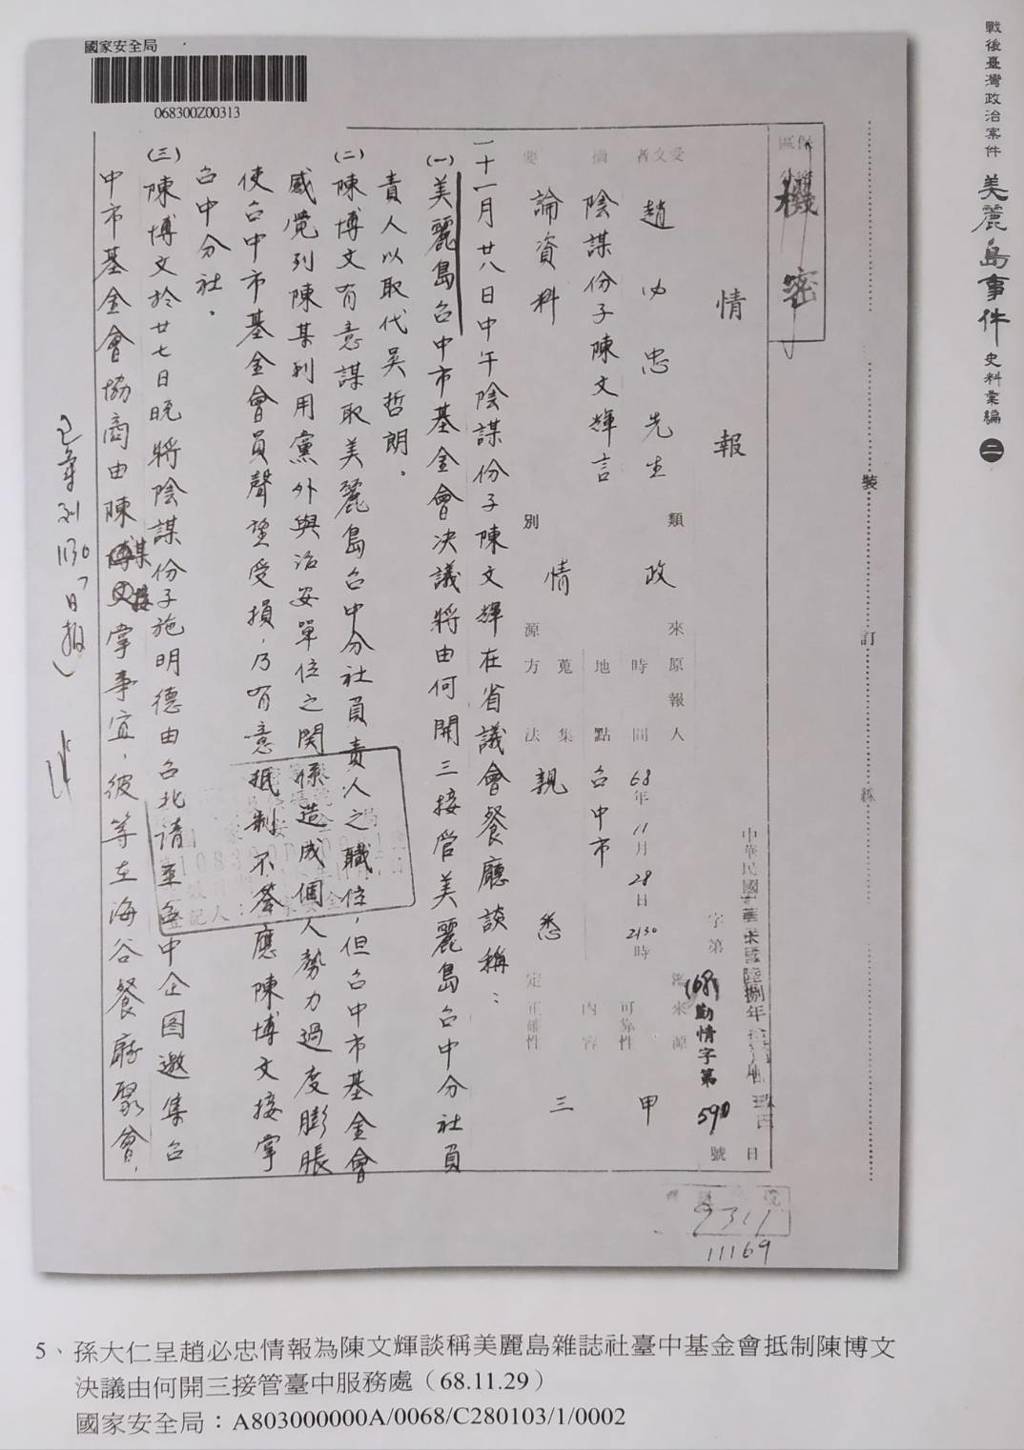 戰後臺灣政治案件 美麗島事件 史料彙編 二
國家安全局
068300Z00313
機密
情報
受文者
趙必忠先生
摘要
陰謀份子陳文輝言
論資料
類別
政情
來源
原報人
時間
68年11月28日2130時
地點
台中市
蒐集方法
親悉
來源可靠性
甲
內容正確性
三
字第
(68)勤情字第590號
一十一月廿八日中午陰謀份子陳文輝在省議會餐廳談稱：
(一)美麗島台中市基金會決議將由何開三接管美麗島台中分社員
責人以取代吳哲朗．
(二)陳博文有意謀取美麗島台中分社員責人之職位，但台中市基金會
感覺到陳某利用黨外與治安單位之関係造成個人勢力過度膨脹
使台中市基金會員聲望受損，乃有意抵制不答應陳博文接掌
台中分社．
(三)陳博文於廿七日晚將陰謀份子施明德由台北請至台中企図邀集台
中市基金會協商由陳某接掌事宜，彼等在海谷餐廳聚會，
裝
訂
線
11169
5、孫大仁呈趙必忠情報為陳文輝談稱美麗島雜誌社臺中基金會抵制陳博文
決議由何開三接管臺中服務處（68.11.29）
國家安全局：A803000000A/0068/C280103/1/0002